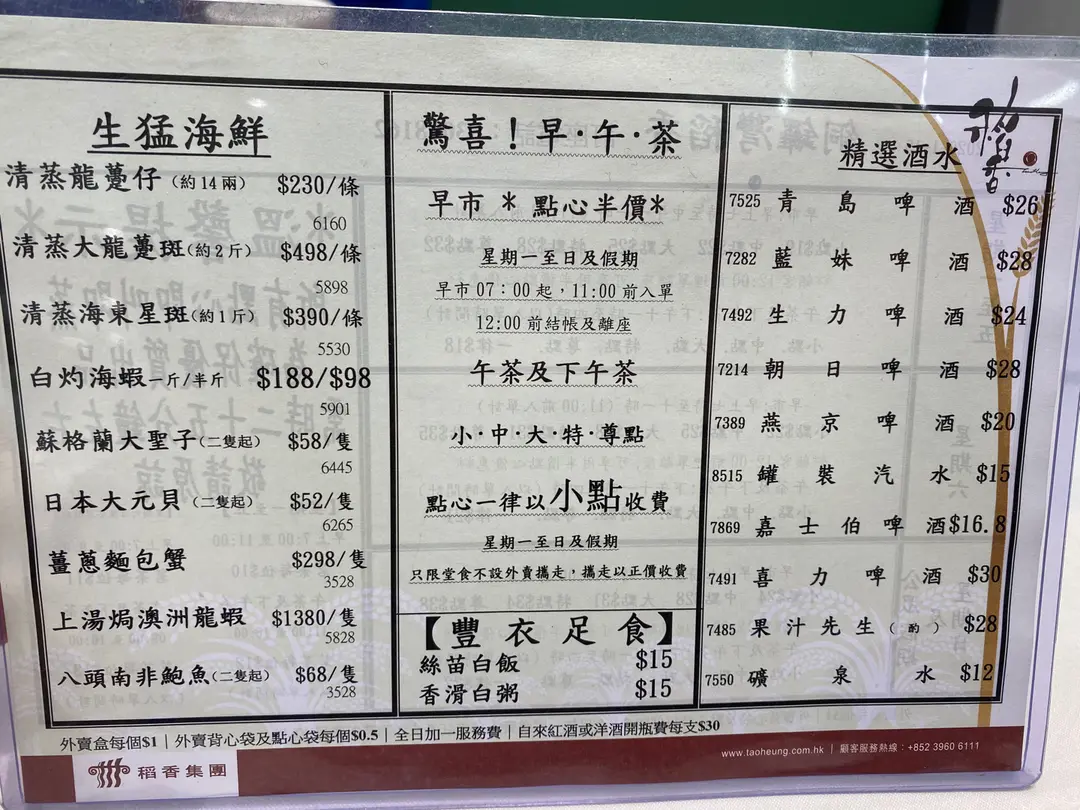 生猛海鮮
清蒸龍躉仔(約14兩) $230/條
6160
清蒸大龍躉斑(約2斤) $498/條
5898
清蒸海東星斑(約1斤) $390/條
5530
白灼海蝦一斤/半斤 $188/$98
5901
蘇格蘭大聖子(二隻起) $58/隻
6445
日本大元貝(二隻起) $52/隻
6265
薑蔥麵包蟹 $298/隻
3528
上湯焗澳洲龍蝦 $1380/隻
5828
八頭南非鮑魚(二隻起) $68/隻
3528
驚喜!早·午·茶
早市 * 點心半價*
星期一至日及假期
早市07:00起,11:00前入單
12:00前結帳及離座
午茶及下午茶
小·中·大·特·尊點
點心一律以小點收費
星期一至日及假期
只限堂食不設外賣攜走,攜走以正價收費
【豐衣足食】
絲苗白飯 $15
香滑白粥 $15
稻香
精選酒水
7525 青島啤酒 $26
7282 藍妹啤酒 $28
7492 生力啤酒 $24
7214 朝日啤酒 $28
7389 燕京啤酒 $20
8515 罐裝汽水 $15
7869 嘉士伯啤酒 $16.8
7491 喜力啤酒 $30
7485 果汁先生(酌) $28
7550 礦泉水 $12
外賣盒每個$1|外賣背心袋及點心袋每個$0.5|全日加一服務費|自來紅酒或洋酒開瓶費每支$30
稻香集團
www.taoheung.com.hk | 顧客服務熱線:+852 3960 6111